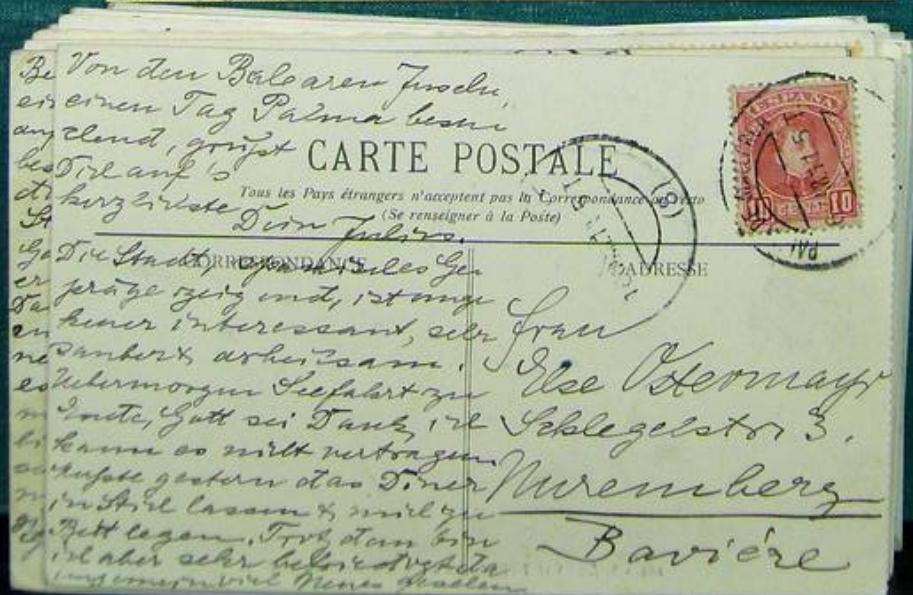 Von den Balearen Inseln,
einen Tag Palma besu
chend, grüsst
Dich auf's
herzlichste
Dein Julius.
CARTE POSTALE
Tous les Pays étrangers n'acceptent pas la Correspondance au recto
(Se renseigner à la Poste)
CORRESPONDANCE
ADRESSE
ESPAÑA
10 10
Die Stadt, Ge
präge zeigend, ist unge
heuer interessant, sehr
sauber & arbeitsam.
Uebermorgen Seefahrt zu
Ende, Gott sei Dank, ich
kann es nicht vertragen
musste gestern das Diner
in Stich lassen & mich zu
Bett legen. Trotzdem bin
ich aber sehr befriedigt da
ungemein viel Neues gesehen
Frau
Else Ostermayr
Schlegelstr. 3.
Nuremberg
Bavière